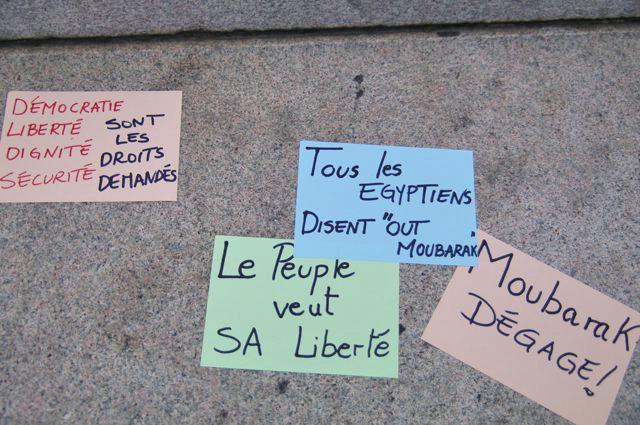 DÉMOCRATIE
LIBERTÉ
DIGNITÉ
SÉCURITÉ
SONT
LES
DROITS
DEMANDÉS
Tous les
EGYPTIENS
DISENT "OUT
MOUBARAK"
Le Peuple
veut
SA Liberté
Moubarak
DÉGAGE!